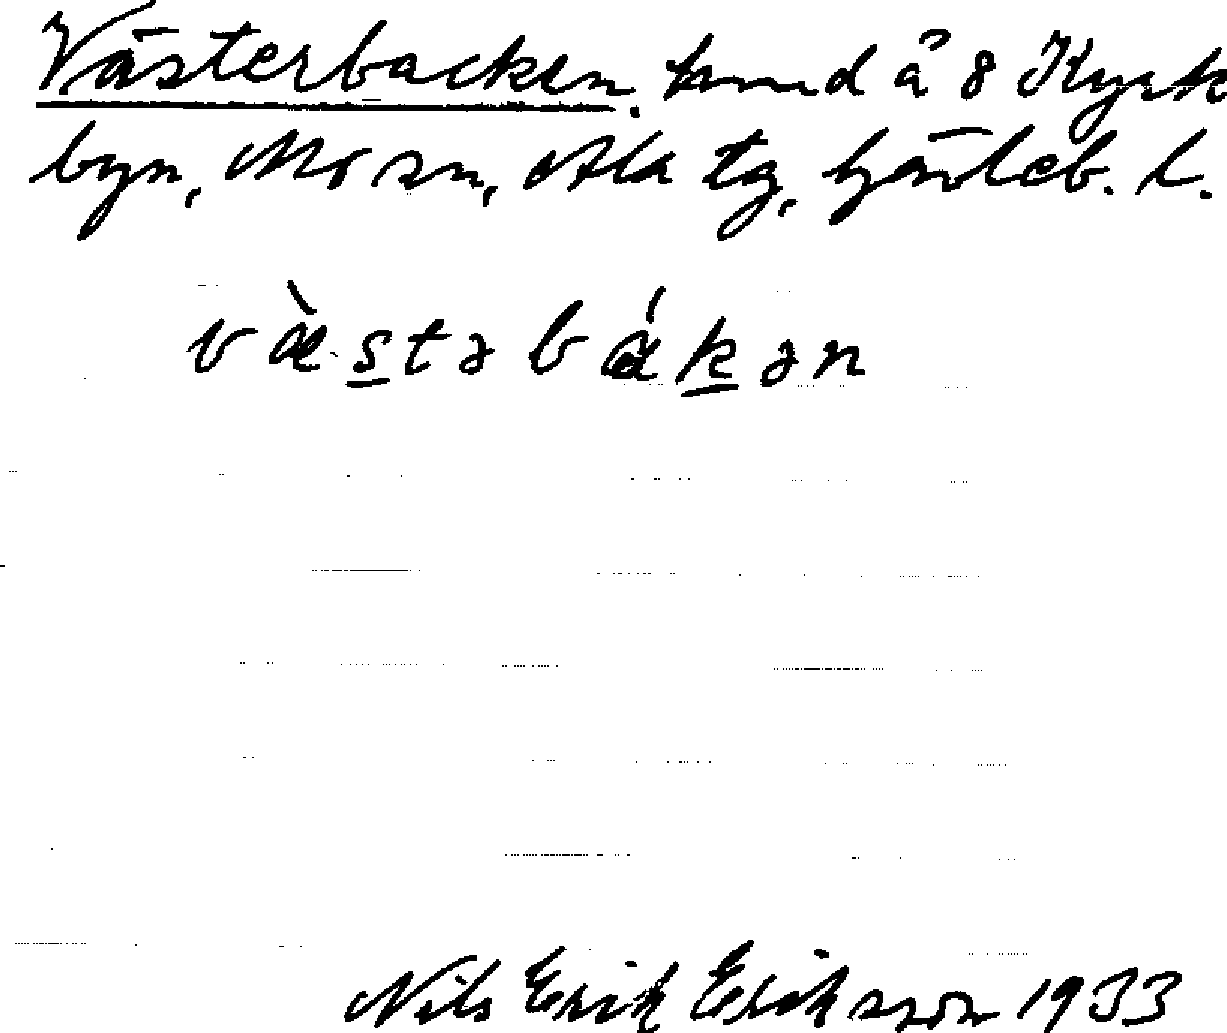 Västerbacken. kmd å 8 Kyrk
byn, Mo sn, Ala tg, Gävleb. l.
və̀stəbákən
Nils Erik Eriksson 1933